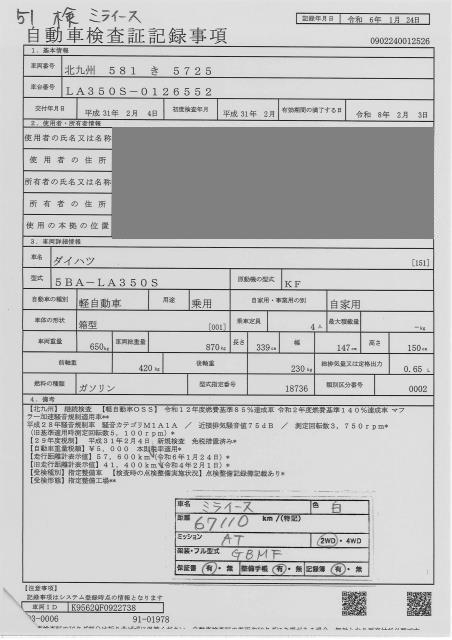 51 検 ミライース
記録年月日 令和 6年 1月 24日
自動車検査証記録事項
0902240012526
1．基本情報
車両番号 北九州 581 き 5725
車台番号 LA350S-0126552
交付年月日 平成 31年 2月 4日 初度検査年月 平成 31年 2月 有効期間の満了する日 令和 8年 2月 3日
2．使用者・所有者情報
使用者の氏名又は名称
使用者の住所
所有者の氏名又は名称
所有者の住所
使用の本拠の位置
3．車両詳細情報
車名 ダイハツ [151]
型式 5BA-LA350S 原動機の型式 KF
自動車の種別 軽自動車 用途 乗用 自家用・事業用の別 自家用
車体の形状 箱型 [001] 乗車定員 4人 最大積載量 -kg
車両重量 650kg 車両総重量 870kg 長さ 339cm 幅 147cm 高さ 150cm
前軸重 420kg 後軸重 230kg 総排気量又は定格出力 0.65 L
燃料の種類 ガソリン 型式指定番号 18736 類別区分番号 0002
4．備考
【北九州】 継続検査 【軽自動車OSS】 令和12年度燃費基準85%達成車 令和2年度燃費基準140%達成車 マフ
ラー加速騒音規制適用車**
平成28年騒音規制車 騒音カテゴリM1A1A ／ 近接排気騒音値75dB ／ 測定回転数3,750rpm*
(旧基準適用時測定回転数5,100rpm)*
【29年度税制】 平成31年2月4日 新規検査 免税措置済み*
【自動車重量税額】¥5,000 本則税率適用*
【走行距離計表示値】57,600km(令和6年1月24日)*
【旧走行距離計表示値】41,400km(令和4年2月1日)*
【受検種別】指定整備車 【検査時の点検整備実施状況】点検整備記録簿記載あり*
【受検形態】指定整備工場**
車名 ミライース 色 白
距離 67110 km／(特記)
ミッション AT 2WD・4WD
架装・フル型式 GBMF
保証書 有・無 整備手帳 有・無 記録簿 有・無
【注意事項】
記録事項はシステム登録時点の情報となります
車両ID K95620F0922738
03-0006 91-01978